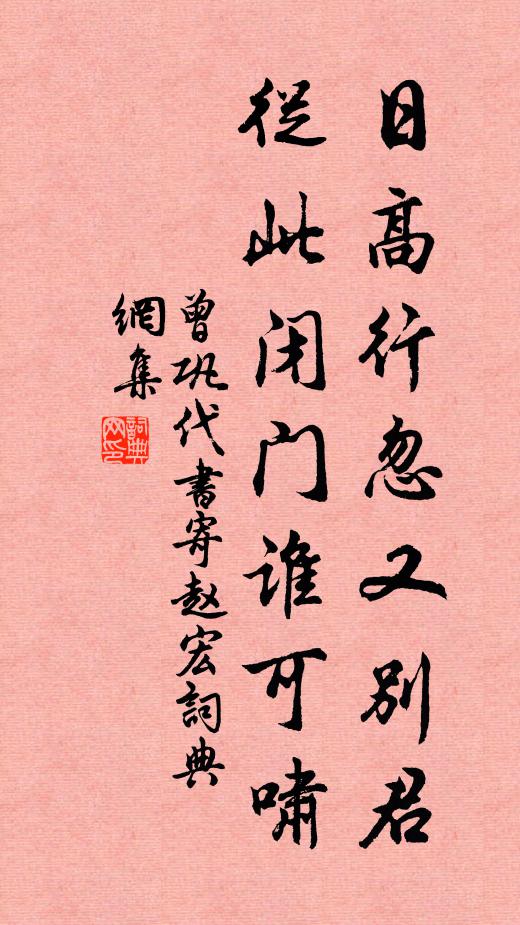 日高行忽又別君
從此闭门谁可嘯
曾巩代書寄赵宏詞典
網集
詞典网印